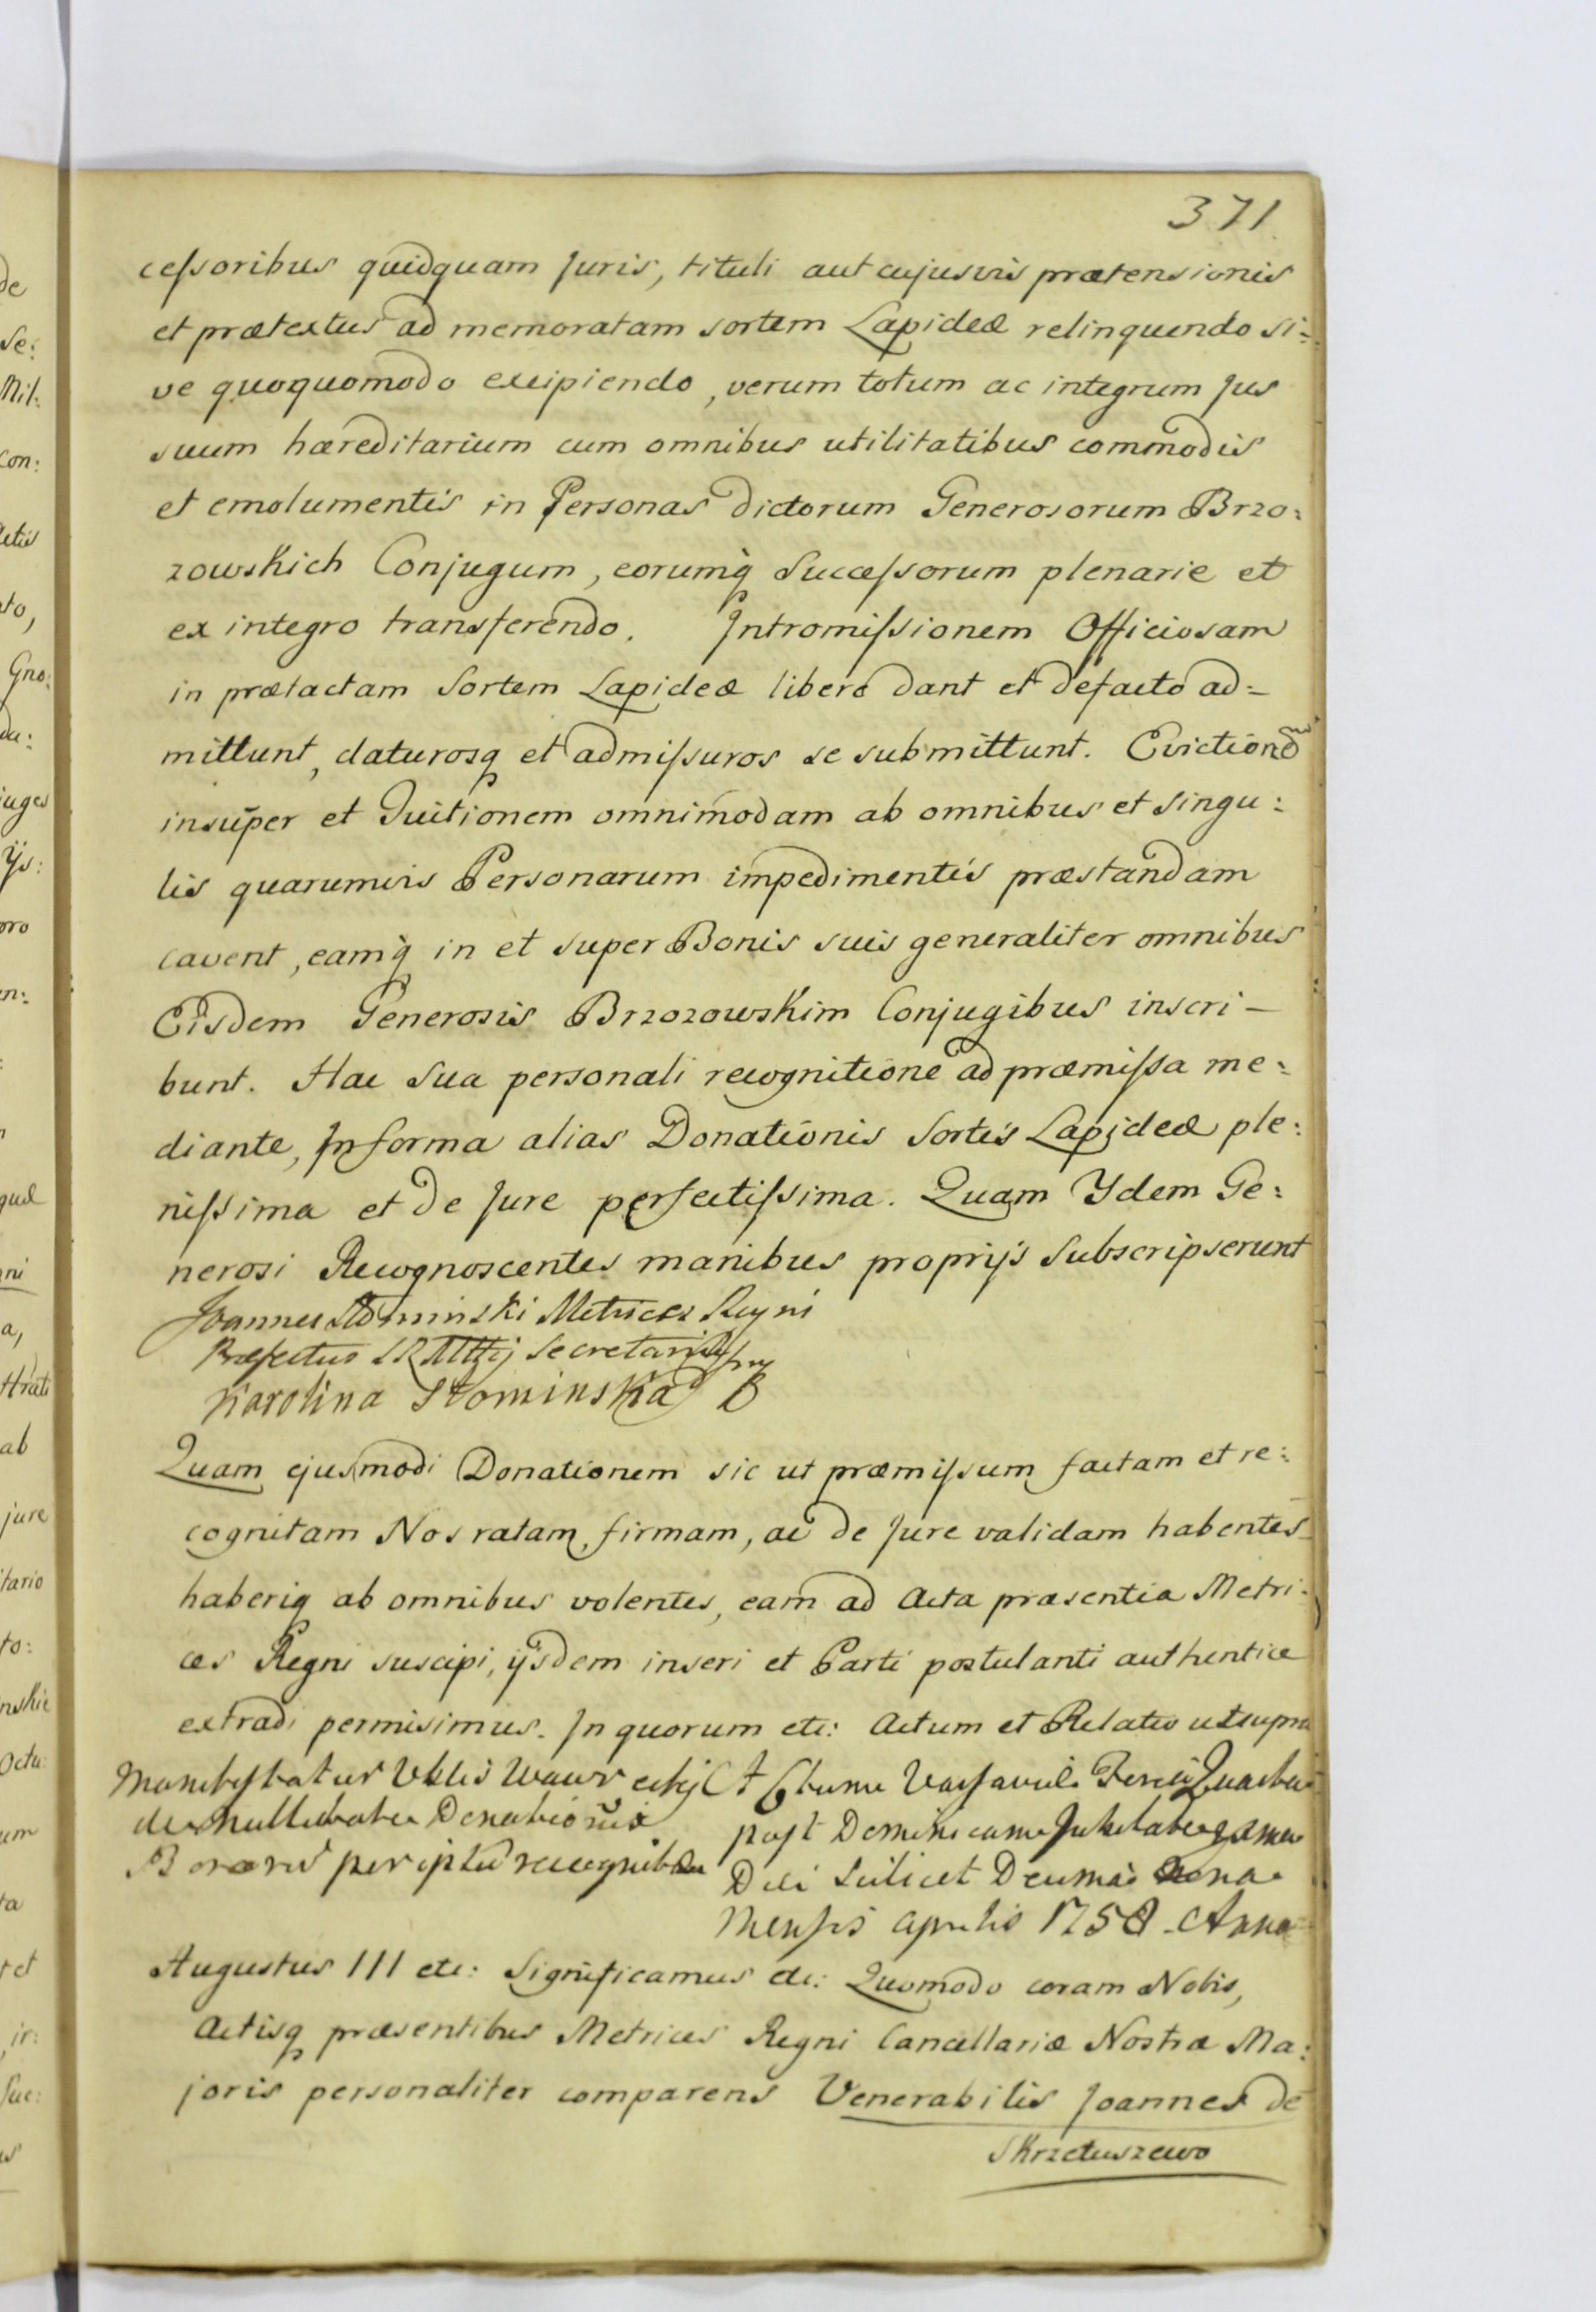 371
cessoribus quidquam Juris, tituli aut cujusvis prætensionis
et prætextus ad memoratam sortem Lapideæ relinquendo si=
ve quoquomodo excipiendo, verum totum ac integrum Jus
suum hæreditarium cum omnibus utilitatibus commodis
et emolumentis in Personas dictorum Generosorum Brzo:
zowskich Conjugum, eorumq̀ Successorum plenarie et
ex integro transferendo. Intromissionem Officiosam
in prætactam Sortem Lapideæ libere dant et defacto ad=
mittunt, daturosq et admissuros se submittunt. Evictionem
insuper et Tuitionem omnimodam ab omnibus et singu:
lis quarumvis Personarum impedimentis præstandam
cavent, eamq̀ in et super Bonis suis generaliter omnibus
Eisdem Generosis Brzozowskim Conjugibus inscri-
bunt. Hac Sua personali recognitione ad præmissa me:
diante, In forma alias Donationis Sortis Lapideæ ple:
nissima et de Jure perfectissima. Quam Ydem Ge:
nerosi Recognoscentes manibus proprijs Subscripserunt
Joannes Słominski Metrices Regni
Præfectus SRMttij Secretarius mp
Karolina Słominska
Quam ejusmodi Donationem sic ut præmissum factam et re:
cognitam Nos ratam, firmam, ac de Jure validam habentes
haberiq ab omnibus volentes, eam ad Acta præsentia Metri:
ces Regni suscipi, ijsdem inseri et Parti postulanti authentice
extradi permisimus. In quorum etc: Actum et Relatio ut supra
Manifestatur Vblis
de nullitate Donationis
Bonorum per ipsum recognitæ
Actum Varsaviæ Feria Quarta
post Dominicam Jubilate
Dei Scilicet Decima nona
Mensis Aprilis 1758 Anno
Augustus III etc: Significamus etc: Quomodo coram Nobis,
Actisq præsentibus Metrices Regni Cancellariæ Nostræ Ma:
joris personaliter comparens Venerabilis Joannes de
Skrzetuszewo